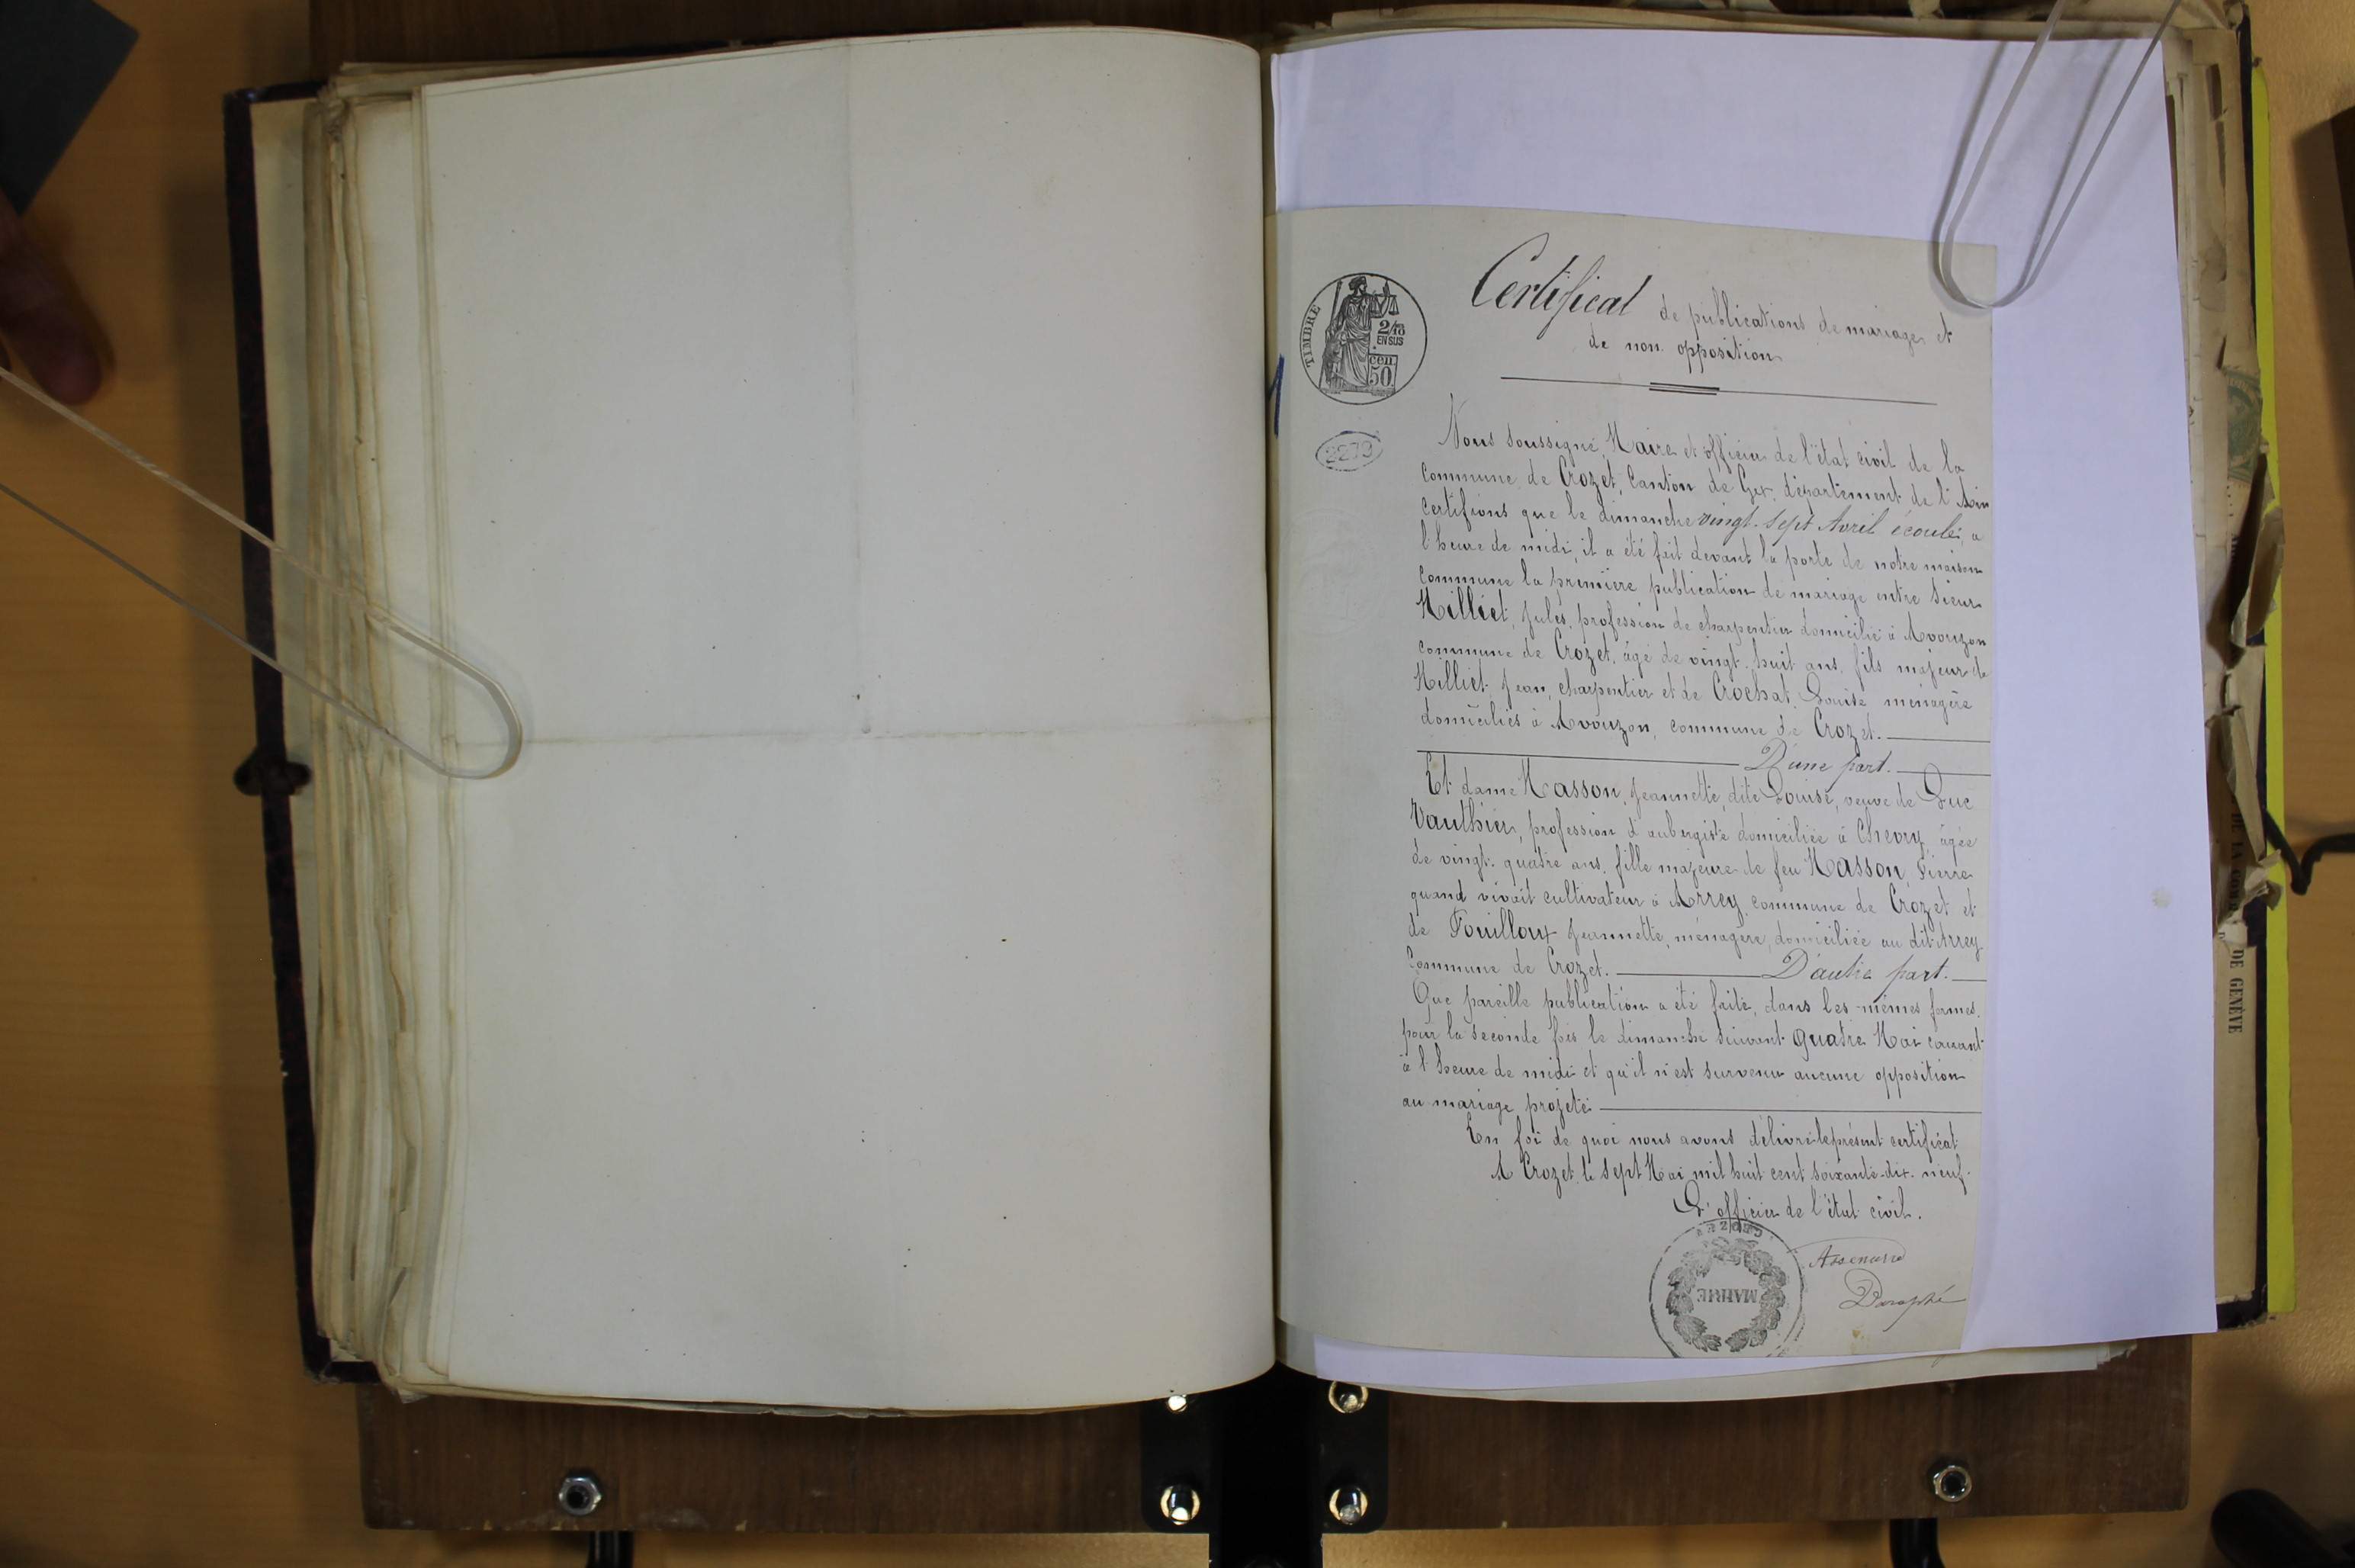 TIMBRE
2/10
EN SUS
cen.
50
Certificat de publications de mariage et
de non opposition
3279
Nous soussigné, Maire et officier de l'état civil de la
Commune de Crozet, Canton de Gex, département de l'Ain
Certifions que le dimanche vingt-sept Avril écoulé, à
l'heure de midi, il a été fait devant la porte de notre maison
Commune la première publication de mariage entre sieur
Milliet, Jules, profession de charpentier domicilié à Avouzon
commune de Crozet, âgé de vingt-huit ans, fils majeur de
Milliet Jean, charpentier et de Crochat Louise ménagère
domiciliés à Avouzon, commune de Crozet.
D'une part.
Et dame Masson, Jeannette, dite Louise, veuve de Luc
Vauthier, profession d'aubergiste domiciliée à Chevry, âgée
de vingt-quatre ans, fille majeure de feu Masson, Pierre
quand vivait cultivateur à Arrey commune de Crozet et
de Fouilloux Jeannette, ménagère, domiciliée au dit Arrey
Commune de Crozet. D'autre part.
Que pareille publication a été faite, dans les mêmes formes,
pour la seconde fois le dimanche suivant quatre Mai courant
à l'heure de midi et qu'il n'est survenu aucune opposition
au mariage projeté.
En foi de quoi nous avons délivré le présent certificat
A Crozet, le sept Mai mil huit cent soixante-dix-neuf.
L'officier de l'état civil.
MAIRIE
DE GENÈVE